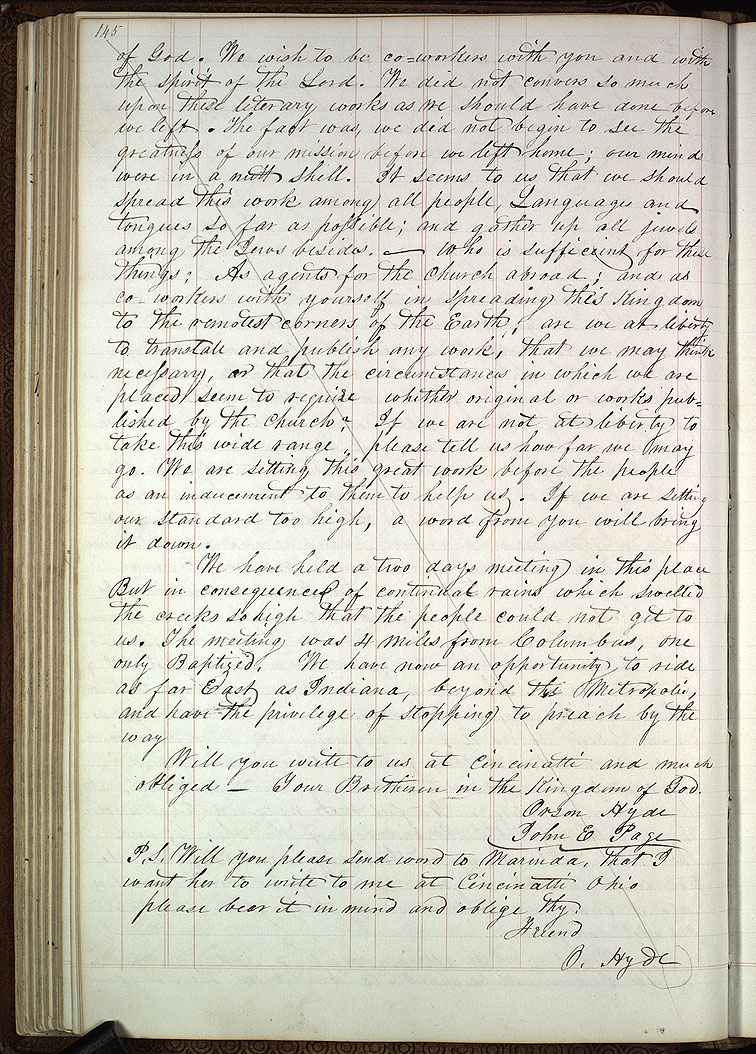 145
of God. We wish to be co-workers with you and with
the spirit of the Lord. We did not convers so much
upon these literary works as we should have done before
we left. The fact was, we did not begin to see the
greatness of our mission before we left home; our minds
were in a nutt shell. It seems to us that we should
spread this work among all people, Languages and
tongues so far as possible; and gather up all jewels
among the Jews besides. — Who is sufficient for these
things; As agents for the church abroad; and as
co-workers with yourself in spreading this Kingdom
to the remotest corners of the Earth; are we at liberty
to translate and publish any work, that we may think
necessary, or that the circumstances in which we are
placed seem to require whether original or works pub=
lished by the church? If we are not at liberty to
take this wide range, please tell us how far we may
go. We are setting this great work before the people
as an inducement to them to help us. If we are setting
our standard too high, a word from you will bring
it down.
We have held a two days meeting in this place
But in consequence of continual rains which swelled
the creeks so high that the people could not get to
us. The meeting was 4 miles from Columbus, one
only Baptized. We have now an opportunity to ride
as far East as Indiana, beyond the Metropolis,
and have the privilege of stopping to preach by the
way
Will you write to us at Cincinatti and much
obliged — Your Brotheren in the Kingdom of God.
Orson Hyde
John E Page
P.S. Will you please send word to Marinda, that I
want her to write to me at Cincinatti Ohio
please bear it in mind and oblige thy.
Friend
O. Hyde